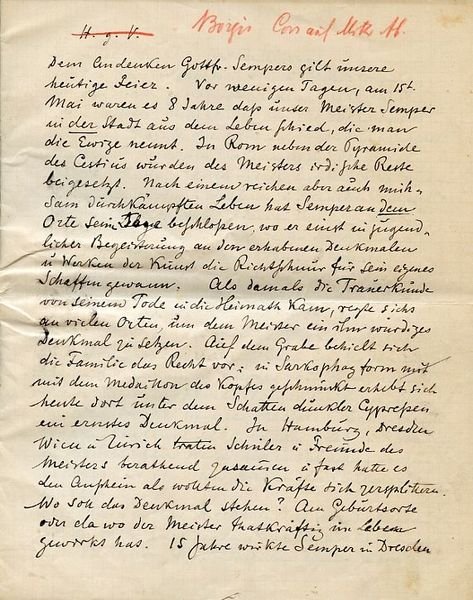 H. g. V.
Borgis
Dem Andenken Gottfr. Sempers gilt unsere
heutige Feier. Vor wenigen Tagen, am 15t.
Mai waren es 8 Jahre daß unser Meister Semper
in der Stadt aus dem Leben schied, die man
die Ewige nennt. In Rom neben der Pyramide
des Cestius wurden des Meisters irdische Reste
beigesetzt. Nach einem reichen aber auch müh-
sam durchkämpften Leben hat Semper an dem
Orte sein Tage beschlossen, wo er einst in jugend-
licher Begeisterung an den erhabenen Denkmalen
u Werken der Kunst die Richtschnur für sein eigenes
Schaffen gewann. Als damals die Trauerkunde
von seinem Tode in die Heimath kam, regte sichs
an vielen Orten, um dem Meister ein ihm würdiges
Denkmal zu setzen. Auf dem Grabe behielt sich
die Familie das Recht vor: in Sarkophagform mit
mit dem Medaillon des Kopfes geschmückt erhebt sich
heute dort unter dem Schatten dunkler Cypressen
ein ernstes Denkmal. In Hamburg, Dresden
Wien u Zürich traten Schüler u Freunde des
Meisters berathend zusammen u fast hatte es
den Anschein als wollten die Kräfte sich zersplittern.
Wo soll das Denkmal stehen? Am Geburtsorte
oder da wo der Meister thatkräftig im Leben
gewirkt hat. 15 Jahre wirkte Semper in Dresden